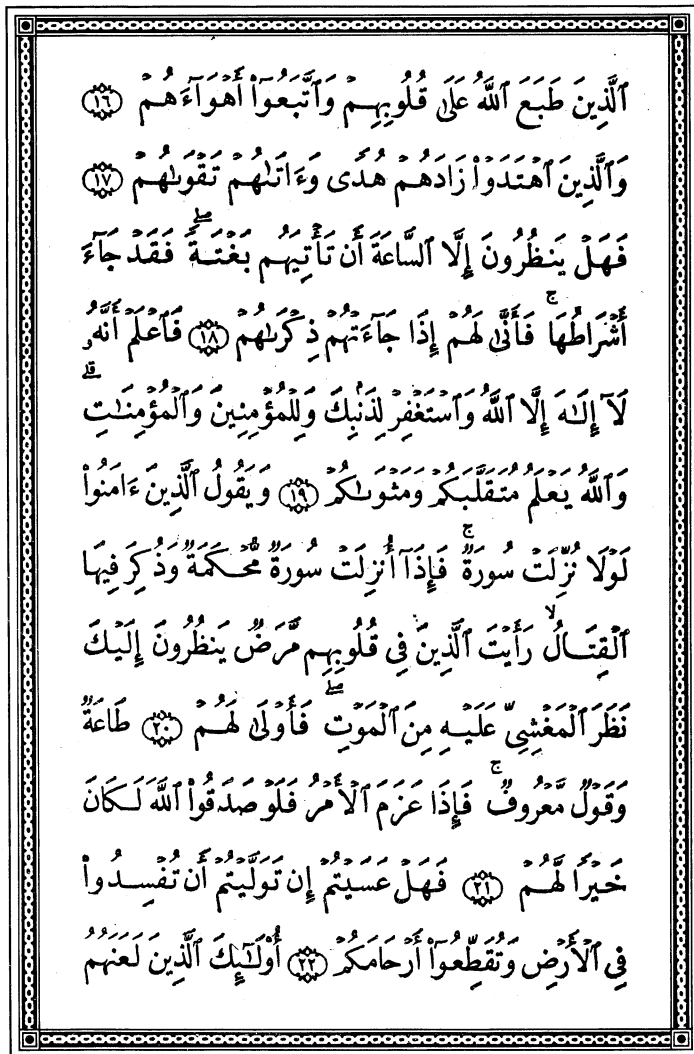 ٱلَّذِينَ طَبَعَ ٱللَّهُ عَلَىٰ قُلُوبِهِمْ وَٱتَّبَعُوٓا۟ أَهْوَآءَهُمْ ١٦
وَٱلَّذِينَ ٱهْتَدَوْا۟ زَادَهُمْ هُدًى وَءَاتَىٰهُمْ تَقْوَىٰهُمْ ١٧
فَهَلْ يَنظُرُونَ إِلَّا ٱلسَّاعَةَ أَن تَأْتِيَهُم بَغْتَةً ۖ فَقَدْ جَآءَ
أَشْرَاطُهَا ۚ فَأَنَّىٰ لَهُمْ إِذَا جَآءَتْهُمْ ذِكْرَىٰهُمْ ١٨ فَٱعْلَمْ أَنَّهُۥ
لَآ إِلَـٰهَ إِلَّا ٱللَّهُ وَٱسْتَغْفِرْ لِذَنۢبِكَ وَلِلْمُؤْمِنِينَ وَٱلْمُؤْمِنَـٰتِ ۗ
وَٱللَّهُ يَعْلَمُ مُتَقَلَّبَكُمْ وَمَثْوَىٰكُمْ ١٩ وَيَقُولُ ٱلَّذِينَ ءَامَنُوا۟
لَوْلَا نُزِّلَتْ سُورَةٌ ۚ فَإِذَآ أُنزِلَتْ سُورَةٌ مُّحْكَمَةٌ وَذُكِرَ فِيهَا
ٱلْقِتَالُ ۙ رَأَيْتَ ٱلَّذِينَ فِى قُلُوبِهِم مَّرَضٌ يَنظُرُونَ إِلَيْكَ
نَظَرَ ٱلْمَغْشِىِّ عَلَيْهِ مِنَ ٱلْمَوْتِ ۖ فَأَوْلَىٰ لَهُمْ ٢٠ طَاعَةٌ
وَقَوْلٌ مَّعْرُوفٌ ۚ فَإِذَا عَزَمَ ٱلْأَمْرُ فَلَوْ صَدَقُوا۟ ٱللَّهَ لَكَانَ
خَيْرًا لَّهُمْ ٢١ فَهَلْ عَسَيْتُمْ إِن تَوَلَّيْتُمْ أَن تُفْسِدُوا۟
فِى ٱلْأَرْضِ وَتُقَطِّعُوٓا۟ أَرْحَامَكُمْ ٢٢ أُو۟لَـٰٓئِكَ ٱلَّذِينَ لَعَنَهُمُ